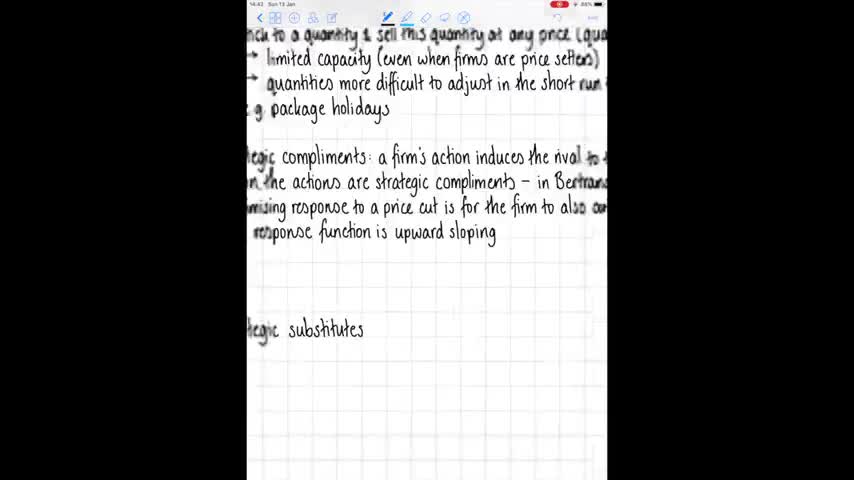 14:43 Sun 13 Jan
86%
to a quantity & sell this quantity at any price (qua
→ limited capacity (even when firms are price setters)
→ quantities more difficult to adjust in the short run
g. package holidays
tegic compliments: a firm's action induces the rival to
the actions are strategic compliments - in Bertran
mising response to a price cut is for the firm to also
response function is upward sloping
tegic substitutes